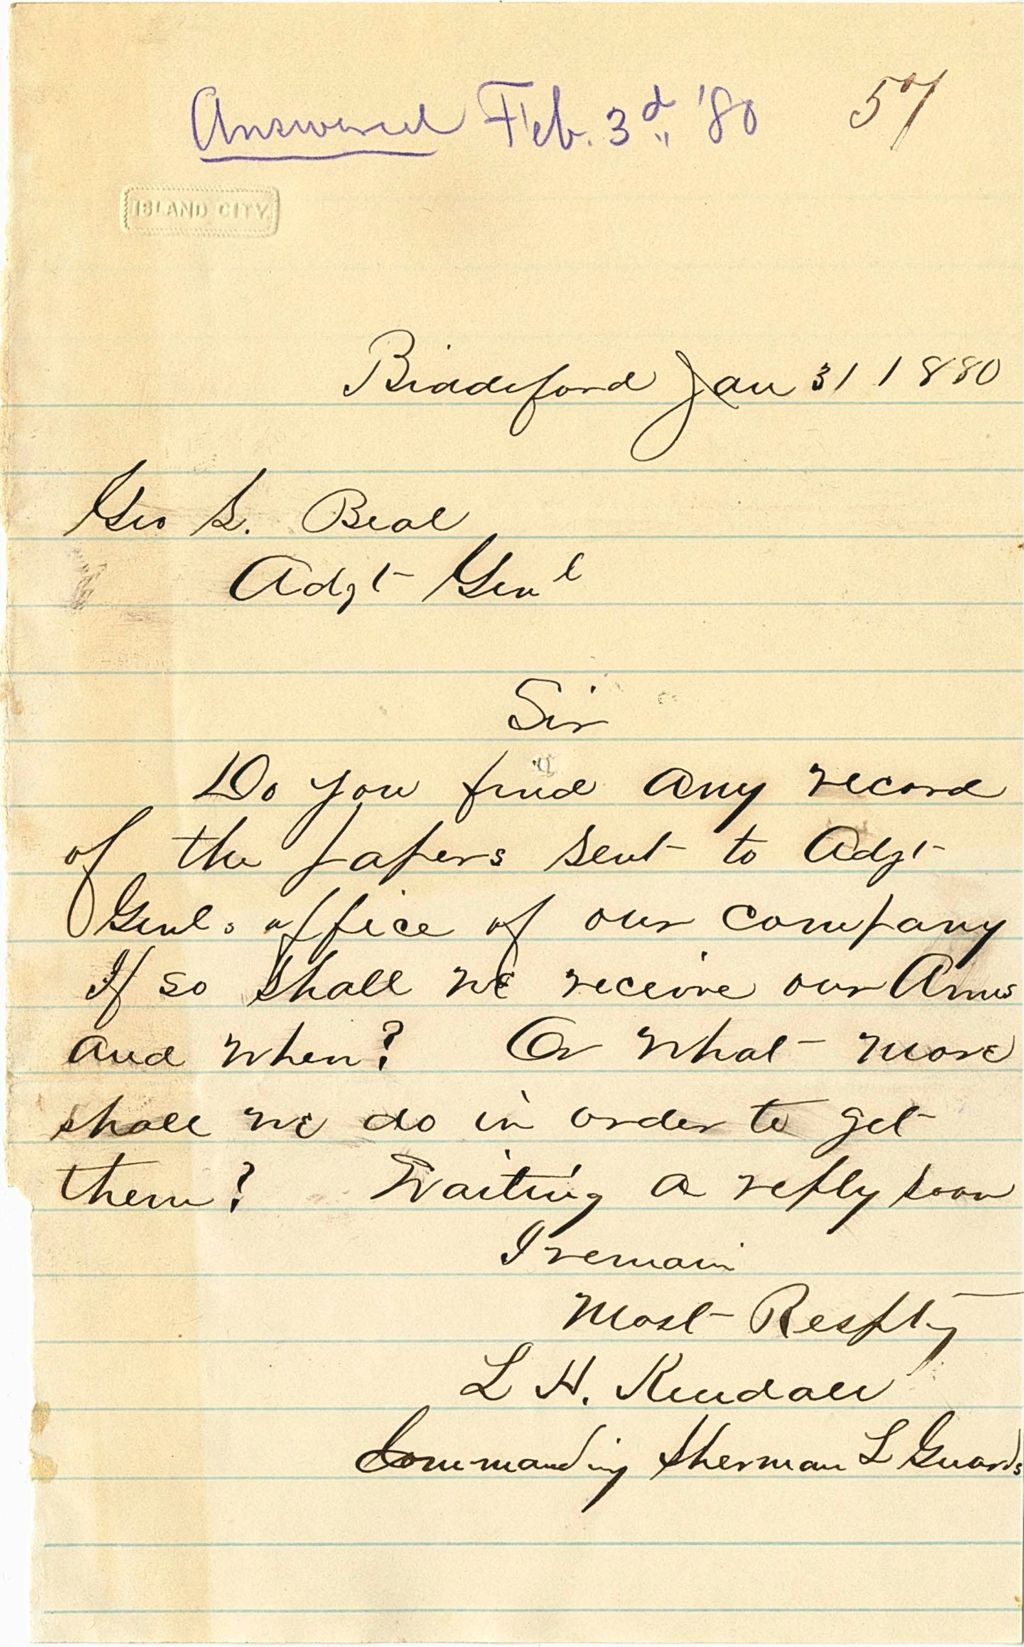 Answered Feb. 3d '80 57
ISLAND CITY
Biddeford Jan 31 1880
Geo L. Beal
Adgt Genl
Sir
Do you find any record
of the papers sent to Adgt
Genls office of our company
If so shall we receive our Arms
and when? Or what more
shall we do in order to get
them? Waiting a reply soon
I remain
Most Respfty
L H. Kendall
Commanding Sherman L Guards